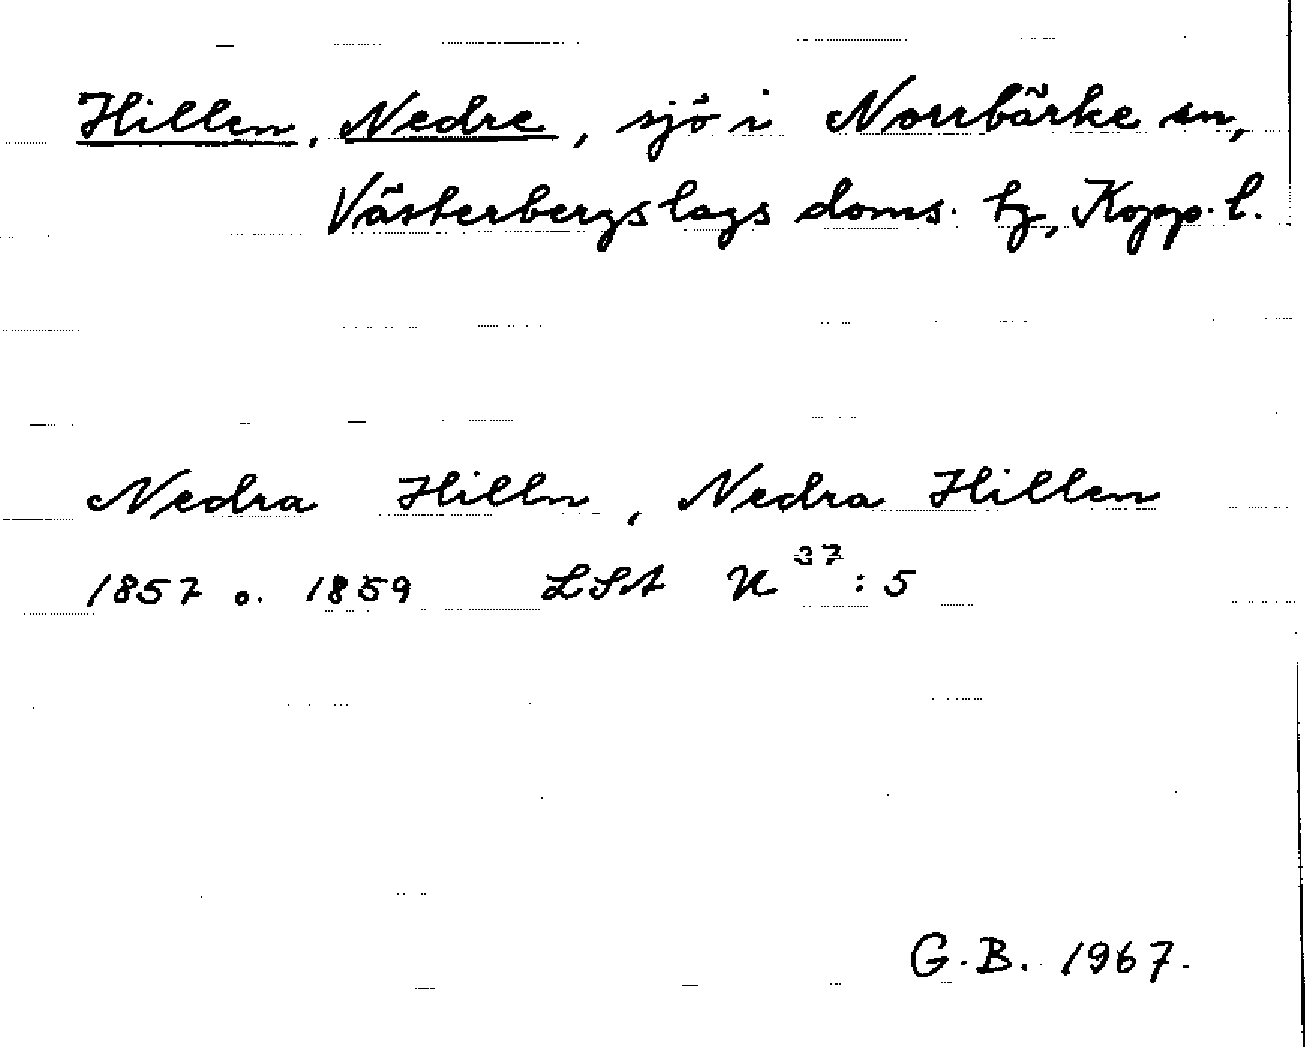 Hillen, Nedre, sjö i Norrbärke sn,
Västerbergslags doms. tg, Kopp. l.
Nedra Hilln, Nedra Hillen
1857 o. 1859 LSA U 37: 5
G.B. 1967.